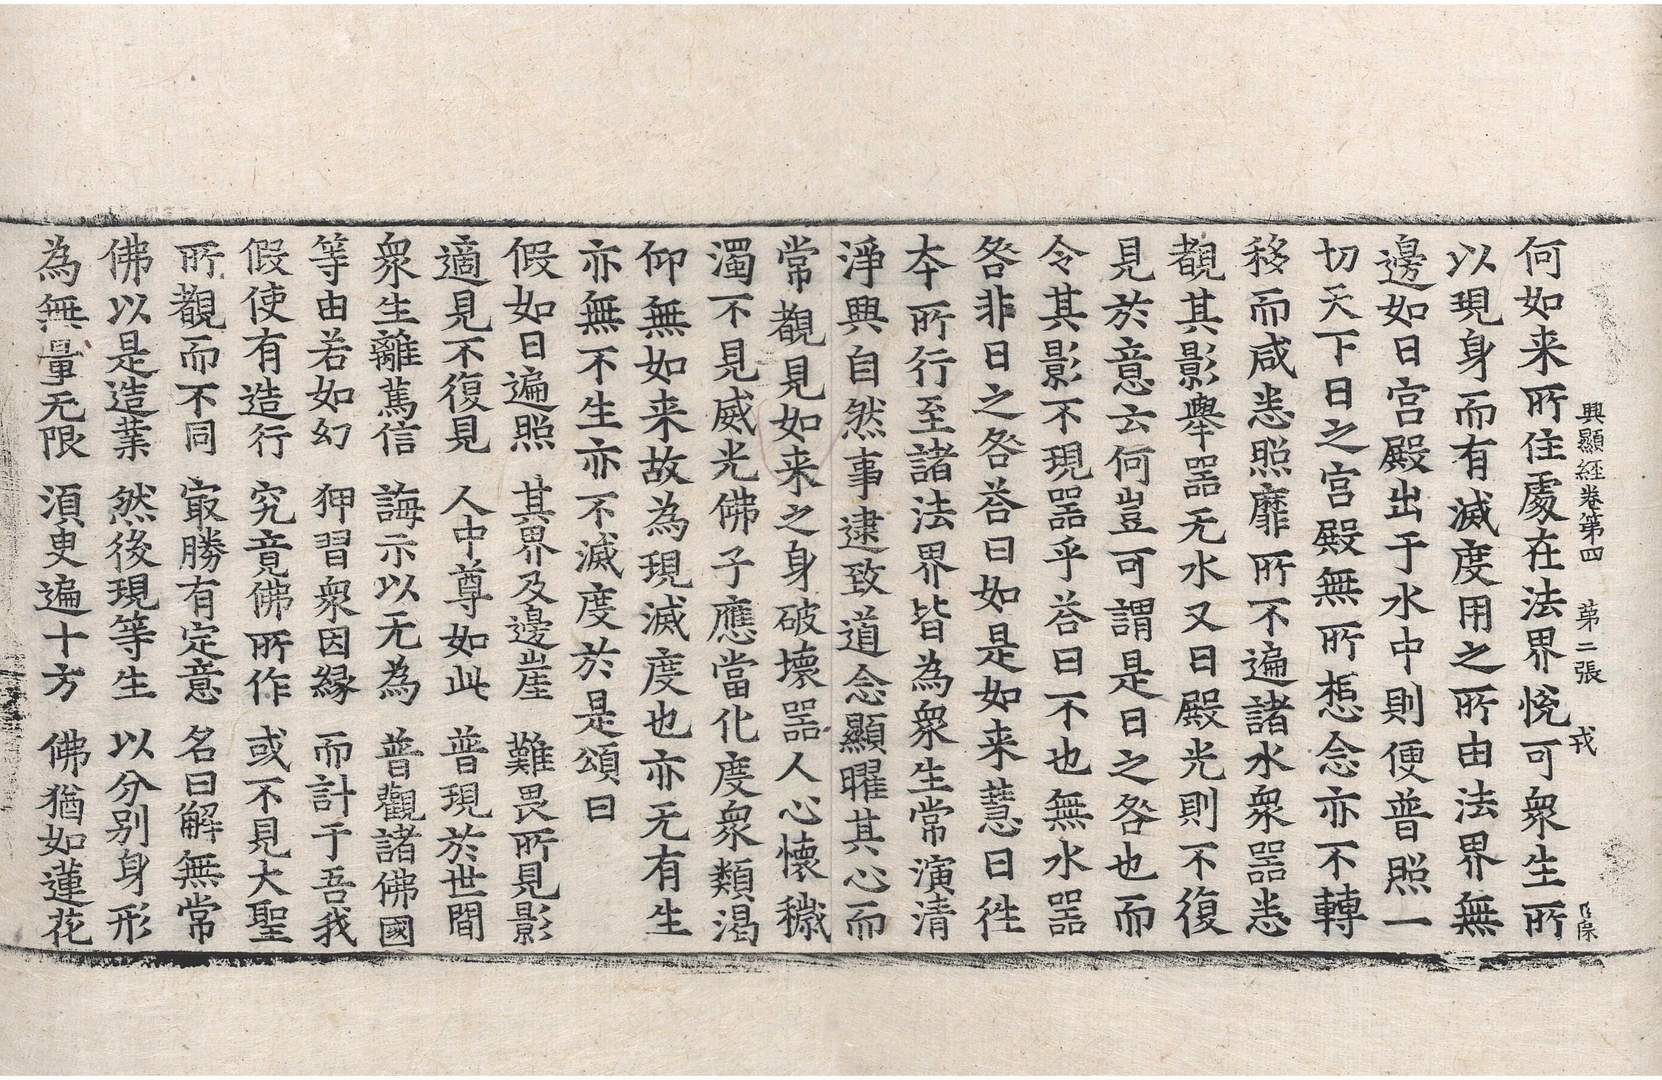 興顯經卷第四 第二張 戎
何如来所住處在法界悅可衆生所
以現身而有滅度用之所由法界無
邊如日宫殿出于水中則便普照一
切天下日之宫殿無所想念亦不轉
移而咸悉照靡所不遍諸水衆器悉
覩其影舉器无水又日殿光則不復
見於意云何豈可謂是日之咎也而
令其影不現器乎荅曰不也無水器
咎非日之咎荅曰如是如来慧日徃
夲所行至諸法界皆為衆生常演清
淨興自然事逮致道念顯曜其心而
常觀見如来之身破壞器人心懷穢
濁不見威光佛子應當化度衆類渴
仰無如来故為現滅度也亦无有生
亦無不生亦不滅度於是頌曰
假如日遍照 其界及邊崖 難畏所見影
適見不復見 人中尊如此 普現於世間
衆生離篤信 誨示以无為 普觀諸佛國
等由若如幻 狎習衆因縁 而計于吾我
假使有造行 究竟佛所作 或不見大聖
所觀而不同 㝡勝有定意 名曰解無常
佛以是造業 然後現等生 以分别身形
為無量无限 湏叟遍十方 佛猶如蓮花